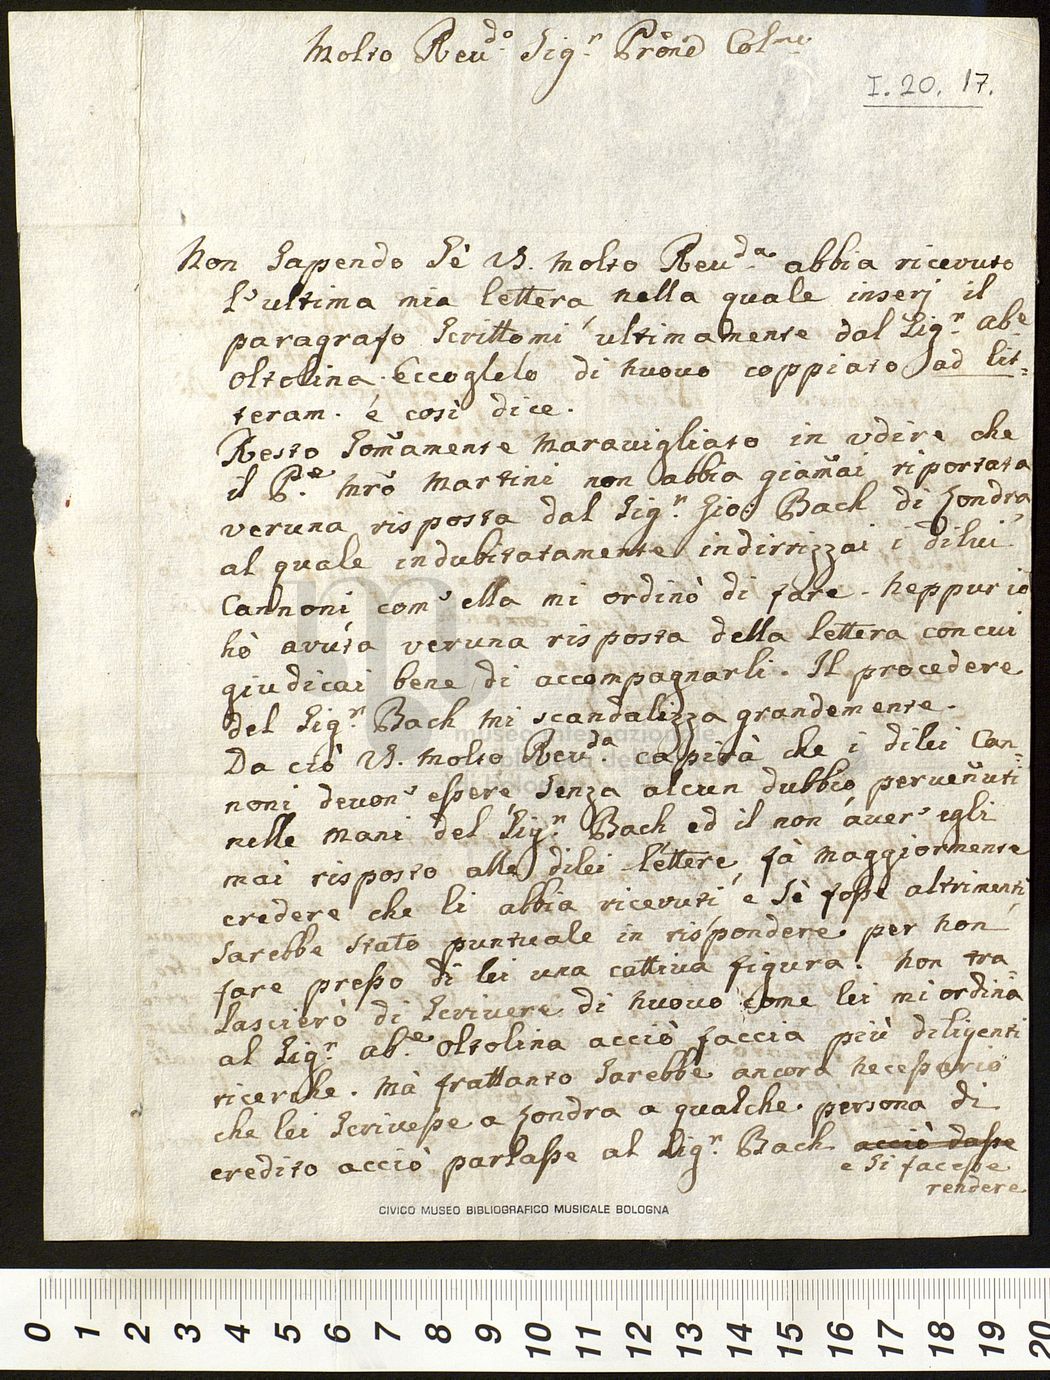 Molto Reu.do Sig.r Prône Colmo
I. 20. 17.
Non sapendo sè V. Molto Reu.da abbia ricevuto
l'ultima mia lettera nella quale inserj il
paragrafo scrittomi ultimamente dal Sig.r ab.e
Oltolina Eccoglelo di nuovo coppiato ad lit=
teram. é così dice.
Resto somamente maravigliato in udire che
il P.e Mrõ Martini non abbia giamai riportata
veruna risposta dal Sig.r Gio: Bach di Londra,
al quale indubitatamente indirrizzai i dilui
Cannoni com' ella mi ordinò di fare. Neppur io
hò avuta veruna risposta della lettera con cui
giudicai bene di accompagnarli. Il procedere
del Sig.r Bach mi scandalizza grandemente.
Da ciò V. Molto Reu.da capirà che i dilei Can=
noni devon' essere senza alcun dubbio pervenuti
nelle mani del Sig.r Bach ed il non aver' egli
mai risposto alle dilei lettere, fà maggiormente
credere che li abbia ricevuti, e sè fosse altrimenti
sarebbe stato puntuale in rispondere per non
fare presso di lei una cattiva figura. Non tra=
lascierò di scrivere di nuovo come lei mi ordina
al Sig.r ab.e Oltolina acciò faccia più diligenti
ricerche. Mà frattanto sarebbe ancora necessario
che lei scrivesse a Londra a qualche persona di
credito acciò parlasse al Sig.r Bach acciò dasse
e si facesse
rendere
museo internazionale
CIVICO MUSEO BIBLIOGRAFICO MUSICALE BOLOGNA
0 1 2 3 4 5 6 7 8 9 10 11 12 13 14 15 16 17 18 19 20